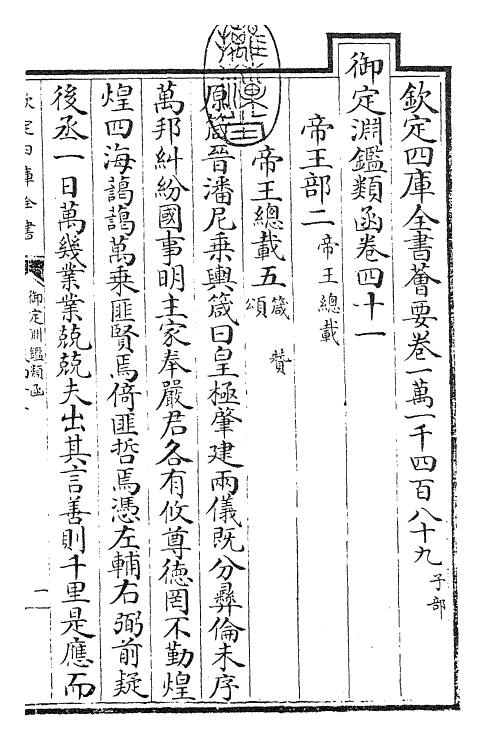 欽定四庫全書薈要卷一萬一千四百八十九 子部
御定淵鑑類函卷四十一
帝王部二 帝王總載
帝王總載五 箴 贊 頌
原箴晉潘尼乗輿箴曰皇極肇建兩儀既分彛倫未序
萬邦糾紛國事明主家奉嚴君各有攸尊徳罔不勤煌
煌四海藹藹萬乗匪賢焉倚匪哲焉憑左輔右弼前疑
後丞一日萬幾業業兢兢夫出其言善則千里是應而
欽定四庫全書
御定淵鑑類函
一